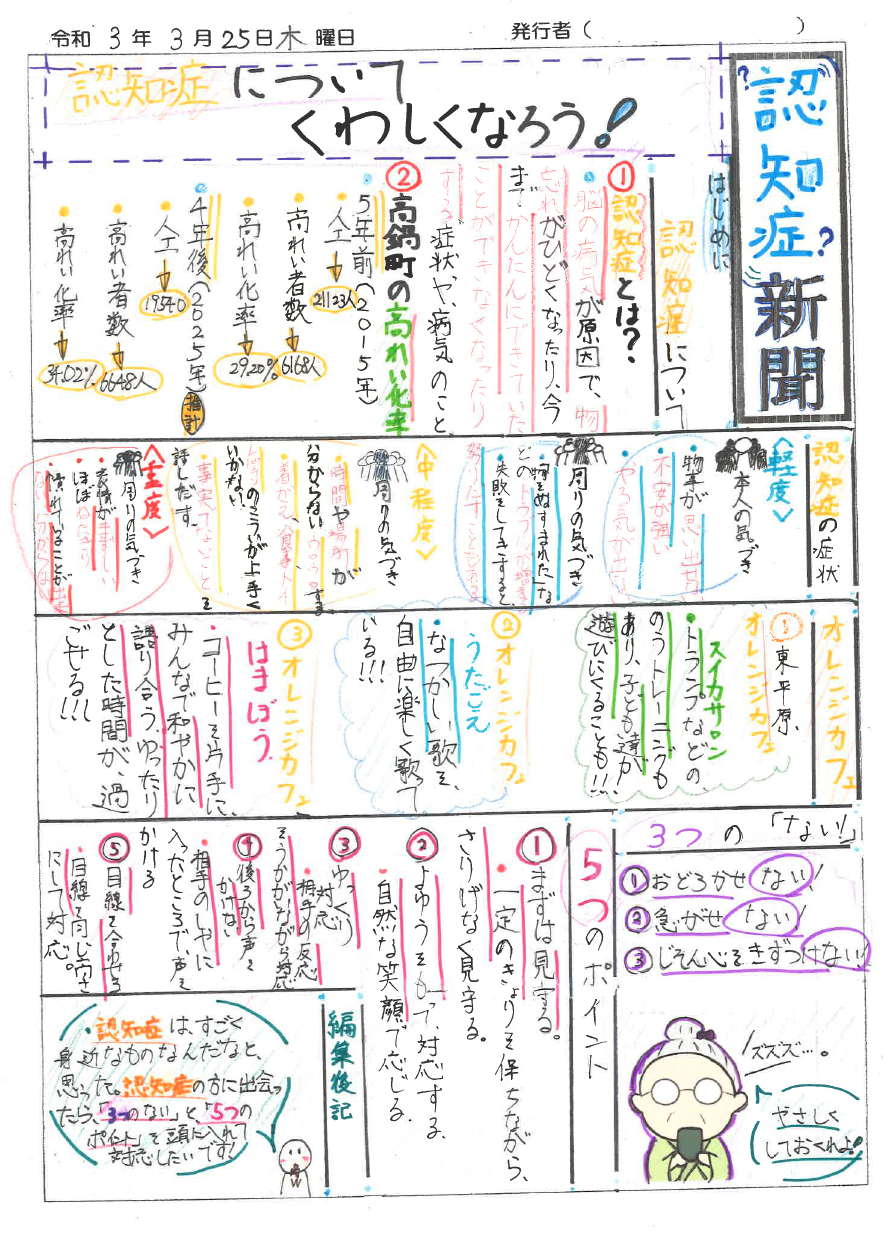 令和 3年 3月 25日 木 曜日
発行者( )
認知症新聞
認知症について
くわしくなろう!
はじめに
認知症について
①認知症とは?
脳の病気が原因で、物
忘れがひどくなったり、今
まで かんたんにできていた
ことができなくなったり
する症状や、病気のこと。
②高鍋町の高れい化率
5年前(2015年)
人口→21123人
高れい者数→6168人
高れい化率→29.20%
4年後(2025年)推計
人口→19540
高れい者数→6648人
高れい化率→34.02%
認知症の症状
〈軽度〉
本人の気づき
物事が思い出せない
不安が強い
やる気が出ない
周りの気づき
「物をぬすまれた」な
どのトラブルが増える
失敗をしてきすると、
怒りだすこともある
〈中程度〉
周りの気づき
時間や場所が
分からない
着がえ、食事、トイ
レ
のこういが上手く
いかない。
事実でないことを
話しだす。
〈重度〉
周りの気づき
表情が
ほぼねたきり
慣れていることが
オレンジカフェ
①東平原、
オレンジカフェ
スイカサロン
・トランプなどの、
のうトレーニングも
あり、子ども達が、
遊びにくることも!!!
②オレンジカフェ
うたごえ
・なつかしい歌を、
自由に楽しく歌って
いる!!!
③オレンジカフェ
はまぼう
・コーヒーを片手に、
みんなで和やかに
語り合う、ゆったり
とした時間が、過
ごせる!!!
3つの「ない!」
①おどろかせない!
②急がせない!
③じそん心をきずつけない!
ズズズ…。
やさしく
しておくれよ!
5つのポイント
①まずは見守る。
・一定のきょりを保ちながら、
さりげなく見守る。
②よゆうをもって、対応する、
・自然な笑顔で応じる。
③ゆっくり
対応
・相手の反応
をうかがいながら対応
④後ろから声を
かけない
・相手のしやに
入ったところで、声を
かける
⑤目線を合わせる
・目線を同じ高さ
にして対応。
編集後記
・認知症は、すごく
身近なものなんだなと、
思った。認知症の方に出会っ
たら、「3つのない」と、「5つの
ポイント」を頭に入れて
対応したいです!